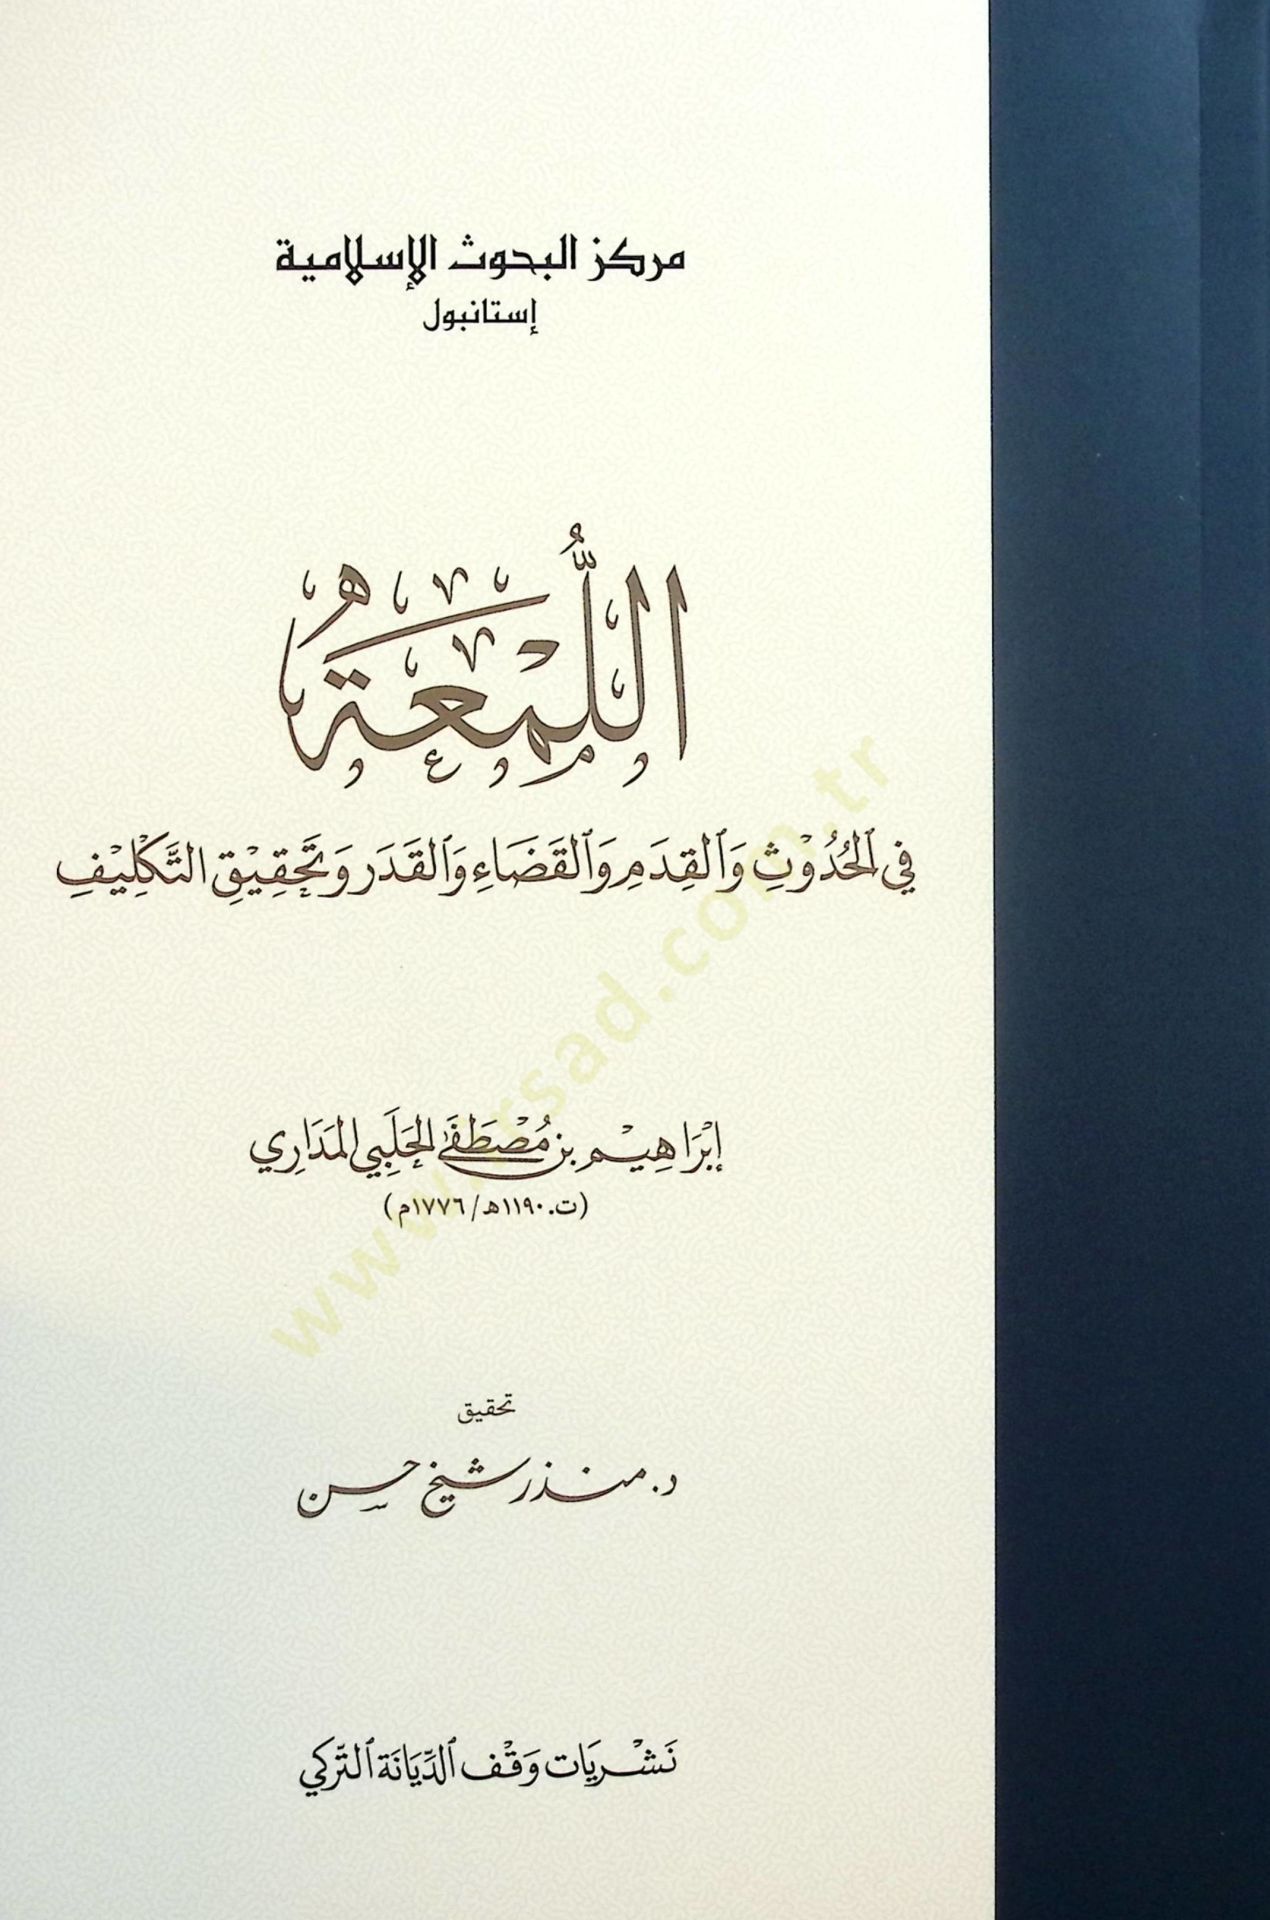 مركز البحوث الإسلامية
إستانبول
اللُّمْعَةُ
في الحُدُوْثِ وَالقِدَمِ وَالقَضَاءِ وَالقَدَر وَتَحْقِيْقِ التَّكْلِيْفِ
إبْرَاهِيْم بن مُصْطَفَى الحَلَبِي المَدَارِي
(ت. ١١٩٠هـ/ ١٧٧٦م)
تحقيق
د. منذر شيخ حسن
نَشْريَات وَقْف الدِّيَانَة التّركي
www.irsad.com.tr